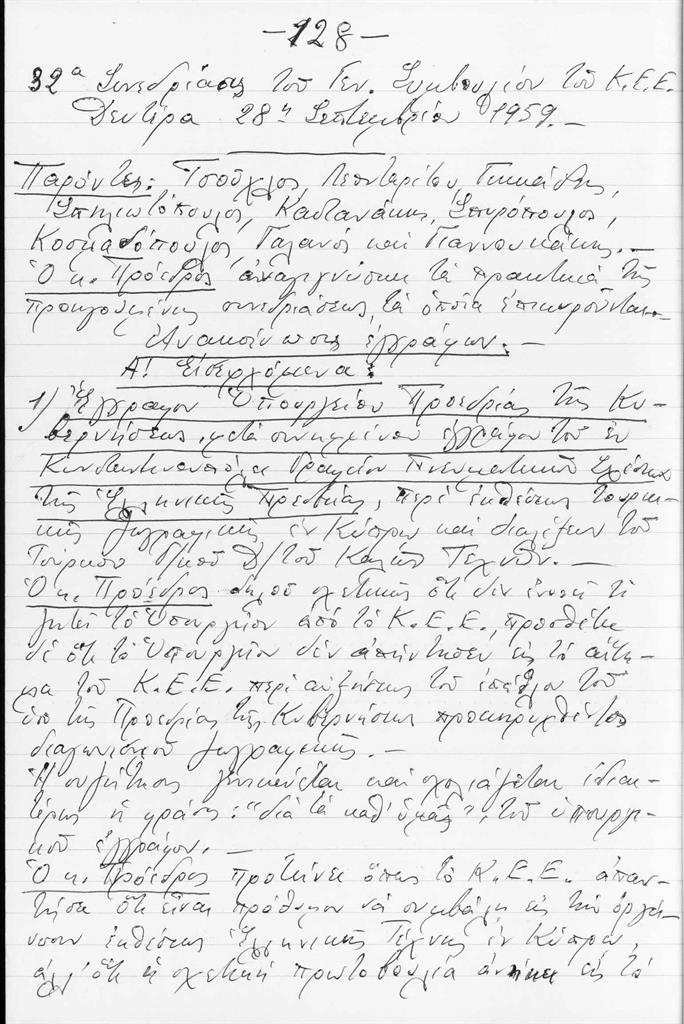 -128-
32ᵃ Συνεδρίασις τοῦ Γεν. Συμβουλίου τοῦ Κ.Ε.Ε.
Δευτέρα 28η Σεπτεμβρίου 1959.-
Παρόντες: Τσούχλος, Λεπενταρίτου,
Σπηλιωτόπουλος, Καστανάκης, Σπυρόπουλος,
Κοσμαδόπουλος, Γαλανός καὶ Γιαννουκάκης.-
Ὁ κ. Πρόεδρος ἀναγιγνώσκει τὰ πρακτικὰ τῆς
προηγουμένης συνεδριάσεως, τὰ ὁποῖα ἐπικυροῦνται.-
Ἀνακοίνωσις ἐγγράφων.-
Α! Εἰσερχόμενα:
1) Ἔγγραφον Ὑπουργείου Προεδρίας τῆς Κυ-
βερνήσεως, μετὰ συνημμένου ἐγγράφου τοῦ ἐν
Κωνσταντινουπόλει Γραφείου Πνευματικῶν Σχέσεων
τῆς Ἑλληνικῆς Πρεσβείας, περὶ ἐκθέσεως τουρκι-
κῆς ζωγραφικῆς ἐν Κύπρῳ καὶ διαλέξεων τοῦ
Τούρκου Δ/τοῦ Καλῶν Τεχνῶν.-
Ὁ κ. Πρόεδρος δηλοῖ σχετικῶς ὅτι δὲν ἐννοεῖ τί
ζητεῖ τὸ Ὑπουργεῖον ἀπὸ τὸ Κ.Ε.Ε., προσθέτει
δὲ ὅτι τὸ Ὑπουργεῖον δὲν ἀπήντησεν εἰς τὸ αἴτη-
μα τοῦ Κ.Ε.Ε. περὶ αὐξήσεως τοῦ ἐπάθλου τοῦ
ὑπὸ τῆς Προεδρίας τῆς Κυβερνήσεως προκηρυχθέντος
διαγωνισμοῦ ζωγραφικῆς.-
Ἡ συζήτησις γενικεύεται καὶ σχολιάζεται ἰδιαι-
τέρως ἡ φράσις: "διὰ τὰ καθ' ὑμᾶς", τοῦ ὑπουργι-
κοῦ ἐγγράφου.-
Ὁ κ. Πρόεδρος προτείνει ὅπως τὸ Κ.Ε.Ε. ἀπαν-
τήσῃ ὅτι εἶναι πρόθυμον νὰ συμβάλῃ εἰς τὴν ὀργά-
νωσιν ἐκθέσεως Ἑλληνικῆς Τέχνης ἐν Κύπρῳ,
ἀλλ' ὅτι ἡ σχετικὴ πρωτοβουλία ἀνήκει εἰς τὸ